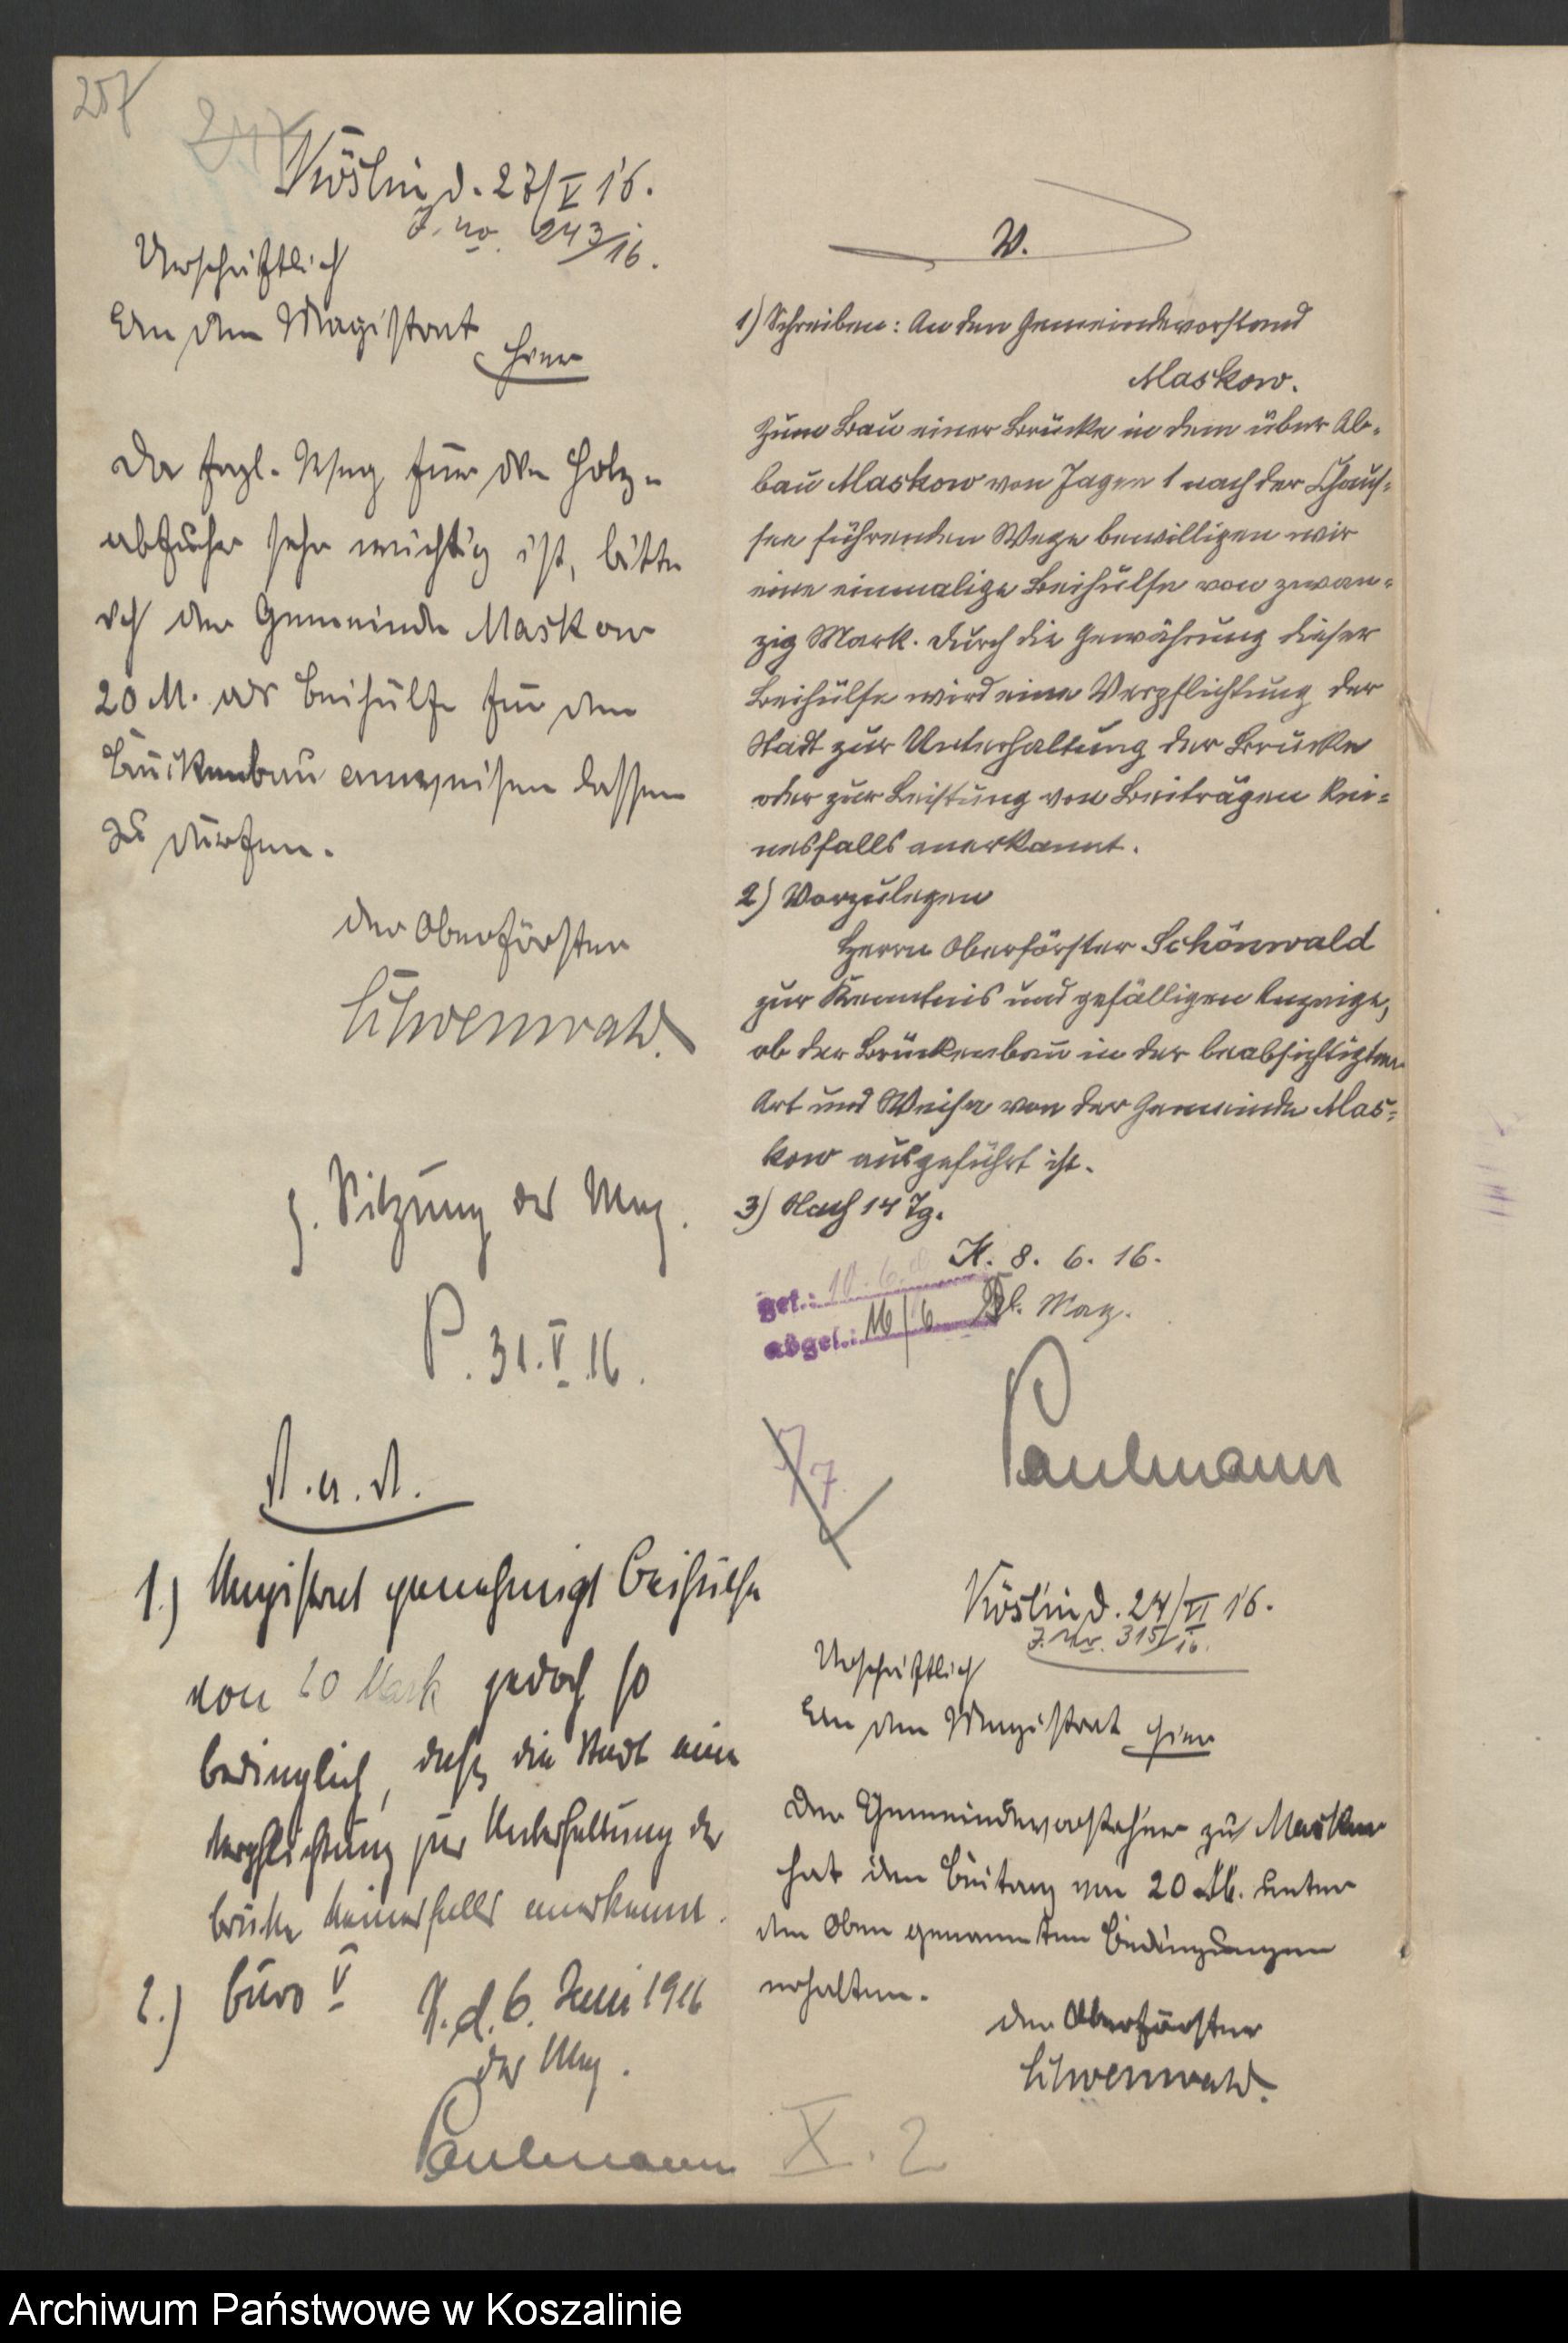 257
Köslin d. 27/V 16.
J. No. 243/16.
Urschriftlich
An den Magistrat
hier
Da fragl. Weg für die Holz-
abfuhr sehr wichtig ist, bitte
ich der Gemeinde Maskow
20 M. als Beihülfe für den
Brückenbau anweisen lassen
zu dürfen.
Der Oberförster
Schoenwald.
z. Sitzung des Mag.
P. 31.V.16.
1.) Magistrat genehmigt Beihülfe
von 20 Mark jedoch so
bedinglich, daß die Stadt eine
Verpflichtung zur Unterhaltung der
Brücke keinesfalls anerkennt.
2.) Büro V
K. d. 6. Juni 1916
Der Mag.
Paulmann
V.
1) Schreiben: An den Gemeindevorstand
Maskow.
Zum Bau einer Brücke in dem über Ab-
bau Maskow von Jagen 1 nach der Chaus-
see führenden Wege bewilligen wir
eine einmalige Beihülfe von zwan-
zig Mark. Durch die Gewährung dieser
Beihülfe wird eine Verpflichtung der
Stadt zur Unterhaltung der Brücke
oder zur Leistung von Beiträgen kei-
nesfalls anerkannt.
2) Vorzulegen
Herrn Oberförster Schönwald
zur Kenntnis und gefälligen Anzeige,
ob der Brückenbau in der beabsichtigten
Art und Weise von der Gemeinde Mas-
kow ausgeführt ist.
3) Nach 14 Tg.
K. 8. 6. 16.
gef.: 10.6.
abges.: 16/6
D. Mag.
Paulmann
5/7.
Köslin d. 24/VI 16.
J. No. 315/16.
Urschriftlich
An den Magistrat hier
Der Gemeindevorsteher zu Maskow
hat den Beitrag von 20 M. unter
den oben genannten Bedingungen
erhalten.
Der Oberförster
Schoenwald.
X. 2
Archiwum Państwowe w Koszalinie